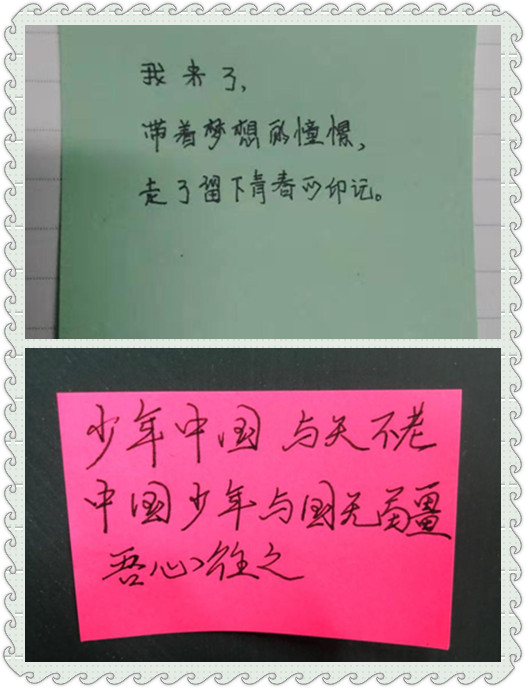 我来了,
带着梦想的憧憬,
走了留下青春的印记。
少年中国 与天不老
中国少年与国无疆
吾心往之